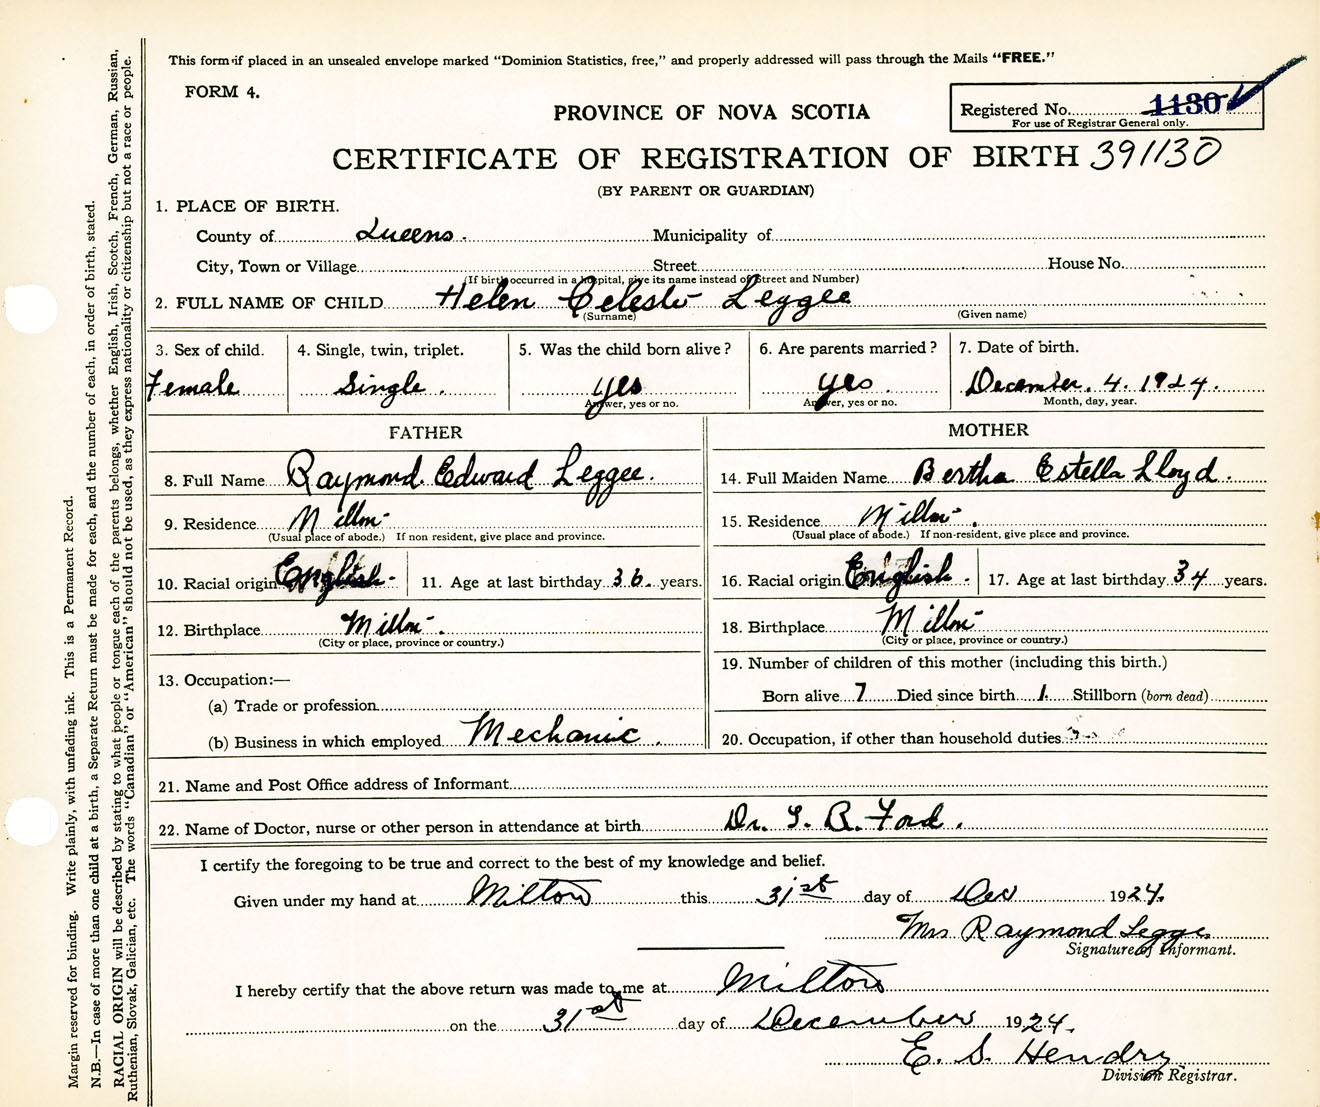 This form if placed in an unsealed envelope marked "Dominion Statistics, free," and properly addressed will pass through the Mails "FREE."
FORM 4.
PROVINCE OF NOVA SCOTIA
Registered No. 1130
For use of Registrar General only.
CERTIFICATE OF REGISTRATION OF BIRTH 391130
(BY PARENT OR GUARDIAN)
1. PLACE OF BIRTH.
County of Queens. Municipality of
City, Town or Village Street House No.
(If birth occurred in a hospital, give its name instead of Street and Number)
2. FULL NAME OF CHILD Helen Celeste Leggee
(Surname) (Given name)
3. Sex of child. 4. Single, twin, triplet. 5. Was the child born alive? 6. Are parents married? 7. Date of birth.
Female Single. yes yes December. 4. 1924.
Answer, yes or no. Answer, yes or no. Month, day, year.
FATHER
8. Full Name Raymond Edward Leggee.
9. Residence Milton
(Usual place of abode.) If non resident, give place and province.
10. Racial origin English 11. Age at last birthday 36. years.
12. Birthplace Milton.
(City or place, province or country.)
13. Occupation:—
(a) Trade or profession
(b) Business in which employed Mechanic.
MOTHER
14. Full Maiden Name Bertha Estella Lloyd.
15. Residence Milton.
(Usual place of abode.) If non-resident, give place and province.
16. Racial origin English. 17. Age at last birthday 34 years.
18. Birthplace Milton
(City or place, province or country.)
19. Number of children of this mother (including this birth.)
Born alive 7 Died since birth 1. Stillborn (born dead)
20. Occupation, if other than household duties
21. Name and Post Office address of Informant
22. Name of Doctor, nurse or other person in attendance at birth Dr. F. R. Ford.
I certify the foregoing to be true and correct to the best of my knowledge and belief.
Given under my hand at Milton this 31st day of Dec 1924.
Mrs Raymond Legge
Signature of Informant.
I hereby certify that the above return was made to me at Milton
on the 31st day of December 1924.
E. S. Hendry
Division Registrar.
Margin reserved for binding. Write plainly, with unfading ink. This is a Permanent Record.
N.B.—In case of more than one child at a birth, a Separate Return must be made for each, and the number of each, in order of birth, stated.
RACIAL ORIGIN will be described by stating to what people or tongue each of the parents belongs, whether English, Irish, Scotch, French, German, Russian,
Ruthenian, Slovak, Galician, etc. The words "Canadian" or "American" should not be used, as they express nationality or citizenship but not a race or people.